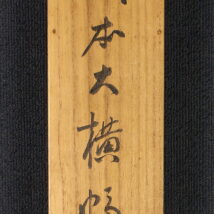 本大横幅